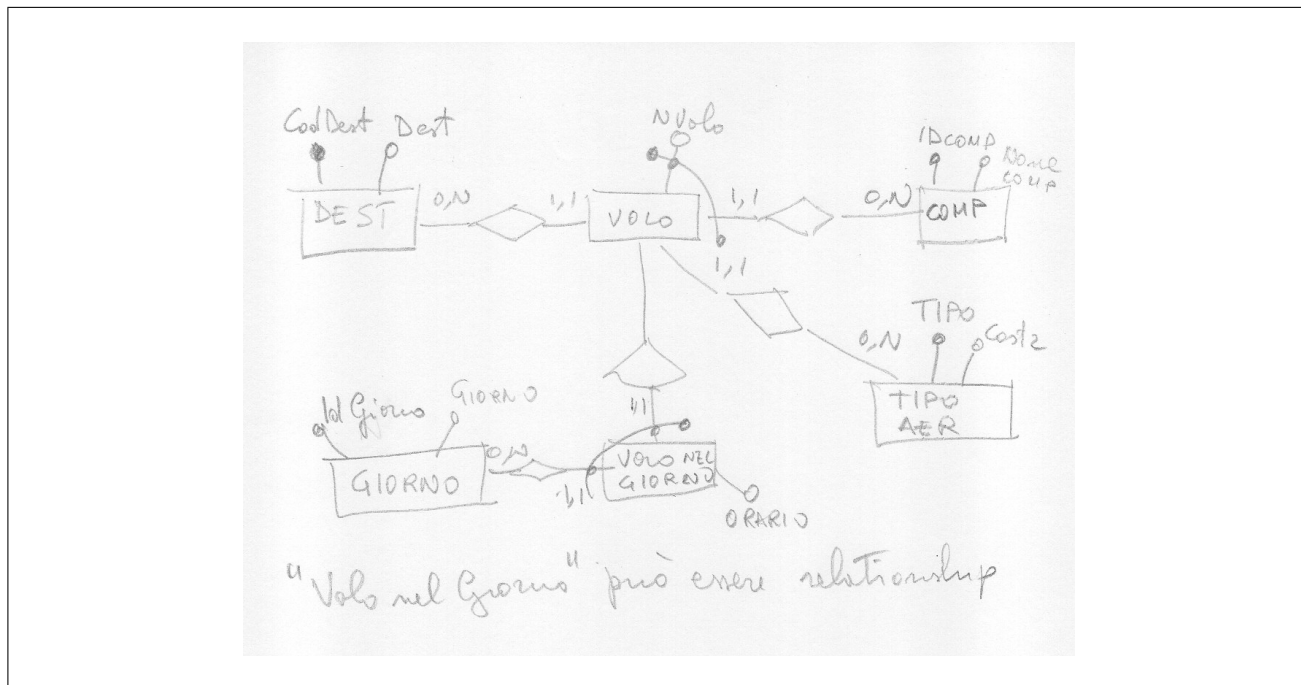 CodDest Dest
NVolo
IDCOMP
Nome
COMP
DEST
0,N
1,1
VOLO
1,1
0,N
COMP
1,1
TIPO
0,N
TIPO
AER
Id Giorno
GIORNO
1,1
0,N
GIORNO
1,1
VOLO NEL
GIORNO
ORARIO
"Volo nel Giorno" può essere relationship